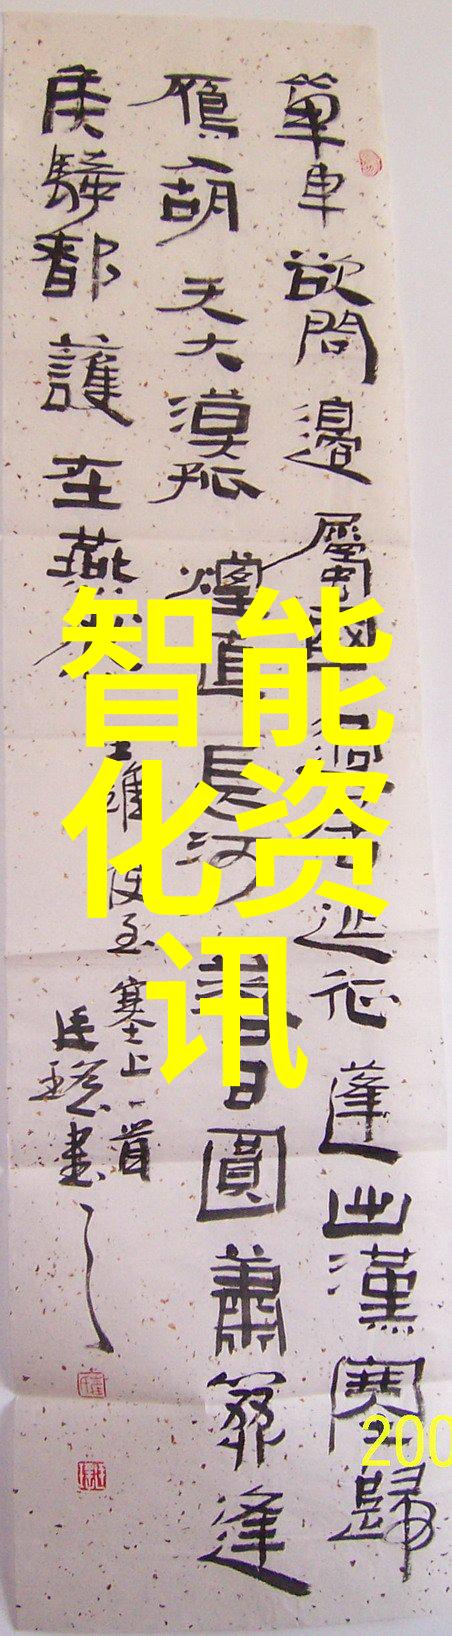 單車欲問邊屬國過居延征蓬出漢塞歸
鴈入胡天大漠孤煙直長河落日圓蕭關逢
候騎都護在燕然
王維使至塞上一首
書
智能
化资
讯
200